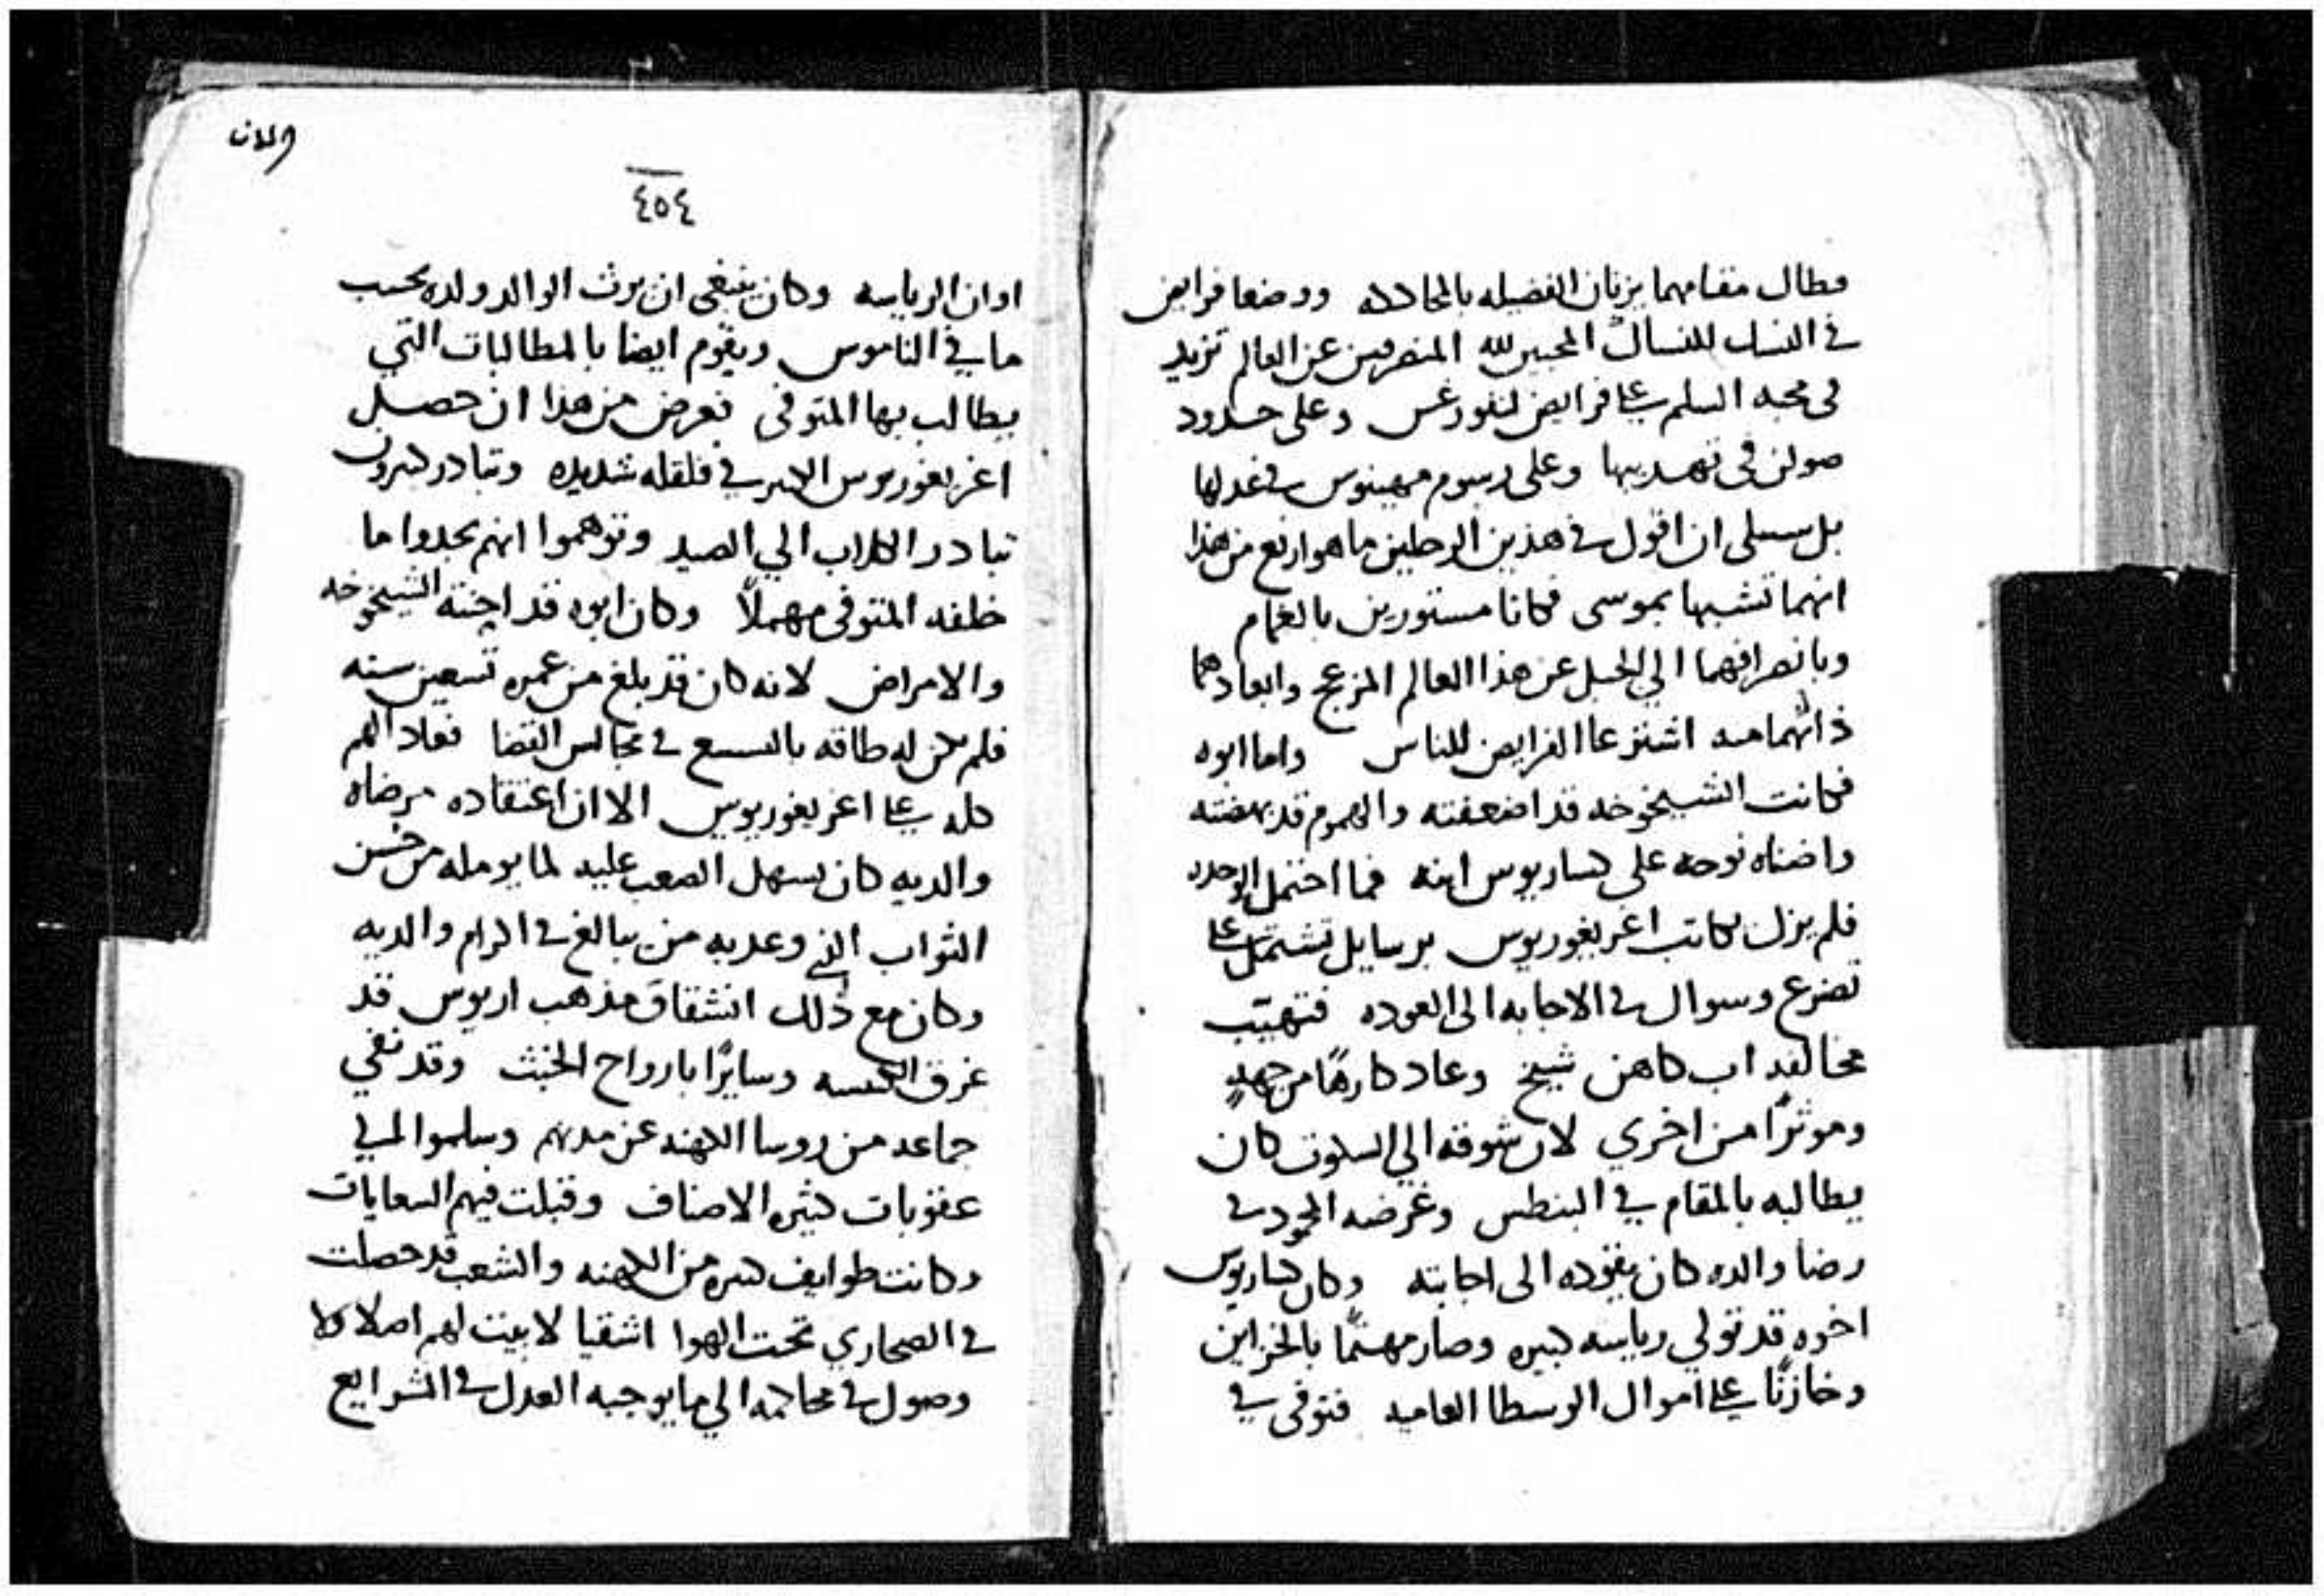 فطال مقامهما يزينان الفضيله بالمجادله ووضعا فرايض
في النسك للنساك المحبين لله المنصرفين عن العالم تزيد
في محبه السلم علي فرايض لنفورغس وعلى حدود
صولن في تهديبها وعلى رسوم مهينوس في عدلها
بل سبيلى ان اقول في هذين الرجلين ما هو ارفع من هذا
انهما تشبها بموسى فكانا مستورين بالغمام
وبانصرافهما الي الجبل عن هذا العالم المزعج وابعادهما
ذاتهما منه اشترعا الفرايض للناس واما ابوه
فكانت الشيخوخه قد اضعفته والهموم قد بهضته
واضناه نوحه على كساريوس ابنه فما احتمل الوحده
فلم يزل يكاتب اغريغوريوس برسايل تشتمل على
تضرع وسوال في الاجابه الى العوده فتهيب
مخالفه اب كاهن شيخ وعاد كارهًا من جهةٍ
وموثرًا من اخري لان شوقه الي السكون كان
يطالبه بالمقام في البنطس وغرضه المجود في
رضا والده كان يقوده الى اجابته وكان كساريوس
اخوه قد تولي رياسه كبيره وصار مهتمًا بالخزاين
وخازنًا علي اموال الوسطا العاميه فتوفى في
والملات
٤٥٤
اوان الرياسه وكان ينبغي ان يرث الوالد ولده بحسب
ما في الناموس ويقوم ايضا بالمطالبات التي
يطالب بها المتوفى فعرض من هذا ان حصل
اغريغوريوس الكبير في قلقله شديده وتبادر كثيرون
تبادر الكلاب الي الصيد وتوهموا انهم يجدوا ما
خلفه المتوفى مهملاً وكان ابوه قد احنته الشيخوخه
والامراض لانه كان قد بلغ من عمره تسعين سنه
فلم يكن له طاقه بالسعي في مجالس القضا فعاد الهم
كله علي اغريغوريوس الا ان اعتقاده مرضاه
والديه كان يسهل الصعب عليه لما يومله من حسن
الثواب الذي وعد به من يبالغ في اكرام والديه
وكان مع ذلك انشقاق مذهب اريوس قد
غرق الكنيسه وسايرًا بارواح الخبث وقد نفي
جماعه من روسا الكهنه عن مدنهم وسلموا الي
عقوبات كثيره الاصناف وقبلت فيهم السعايات
وكانت طوايف كثيره من الكهنه والشعب قد حصلت
في الصحاري تحت الهوا اشقيا لا بيت لهم اصلا ولا
وصول في محاكمه الي ما يوجبه العدل في الشرايع